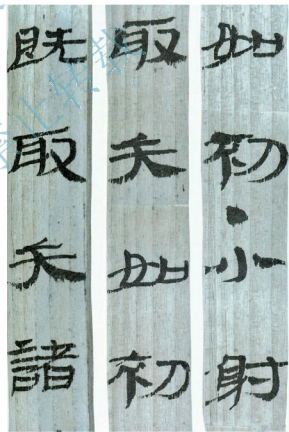 如初●小射
取矢如初
既取矢諸
止转载